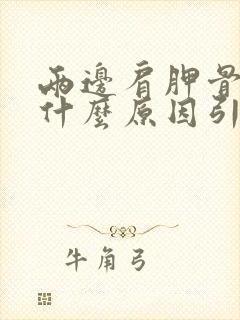 兩邊肩胛骨
什麼原因引
牛角弓